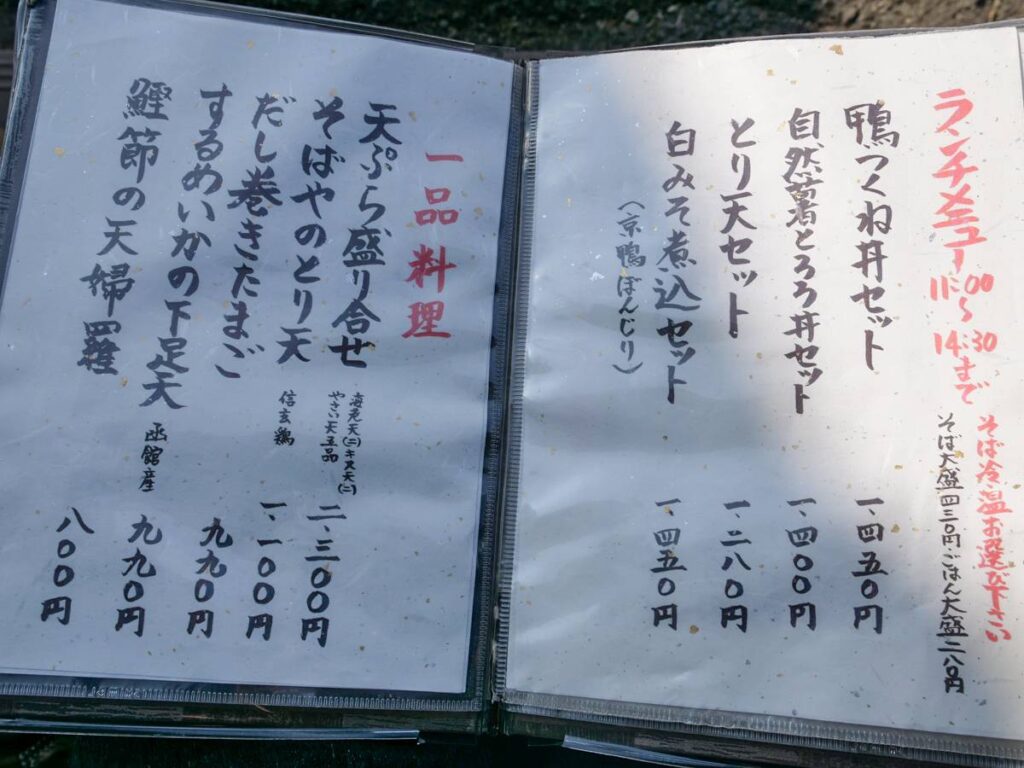 ランチメニュー 11:00〜14:30まで
そば冷温お選び下さい
そば大盛四三〇円ごはん大盛二八〇円
鴨つくね丼セット 一、四五〇円
自然薯とろろ丼セット 一、四〇〇円
とり天セット 一、二八〇円
白みそ煮込セット 一、四五〇円
(京鴨ぼんじり)
一品料理
天ぷら盛り合せ 海老天(二)キス天(二)
やさい天五品 二、三〇〇円
そばやのとり天 信玄鶏 一、一〇〇円
だし巻きたまご 九九〇円
するめいかの下足天 函館産 九九〇円
鰹節の天婦羅 八〇〇円